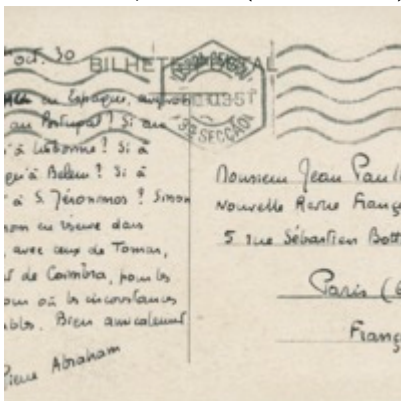 oct. 30
BILHETE POSTAL
en Espagne,
au Portugal ? Si au
'à Lisbonne ? Si à
qu'à Belem ? Si à
'à S. Jéronimos ? Sinon
non en vienne dans
avec ceux de Tomar,
de Coimbra, pour les
où les circonstances
Bien amicalement
Pierre Abraham
3ª SECCÃO
Monsieur Jean Paul
Nouvelle Revue Franç
5 rue Sébastien Bott
Paris (6
Franç